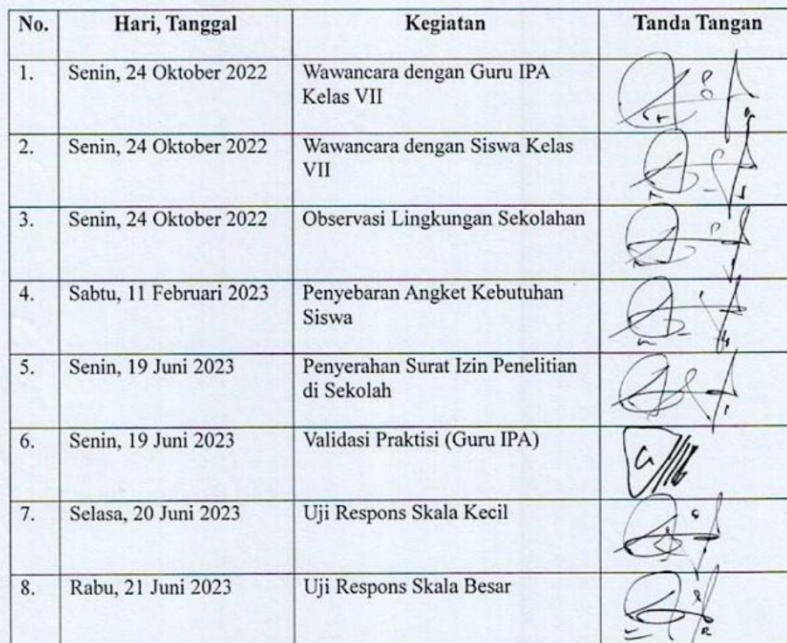 No. Hari, Tanggal Kegiatan Tanda Tangan
1. Senin, 24 Oktober 2022 Wawancara dengan Guru IPA
Kelas VII
2. Senin, 24 Oktober 2022 Wawancara dengan Siswa Kelas
VII
3. Senin, 24 Oktober 2022 Observasi Lingkungan Sekolahan
4. Sabtu, 11 Februari 2023 Penyebaran Angket Kebutuhan
Siswa
5. Senin, 19 Juni 2023 Penyerahan Surat Izin Penelitian
di Sekolah
6. Senin, 19 Juni 2023 Validasi Praktisi (Guru IPA)
7. Selasa, 20 Juni 2023 Uji Respons Skala Kecil
8. Rabu, 21 Juni 2023 Uji Respons Skala Besar